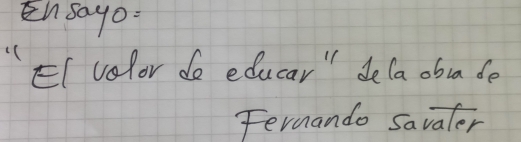 Ensayo:
"El valor de educar" de la obra de
Fernando Savater